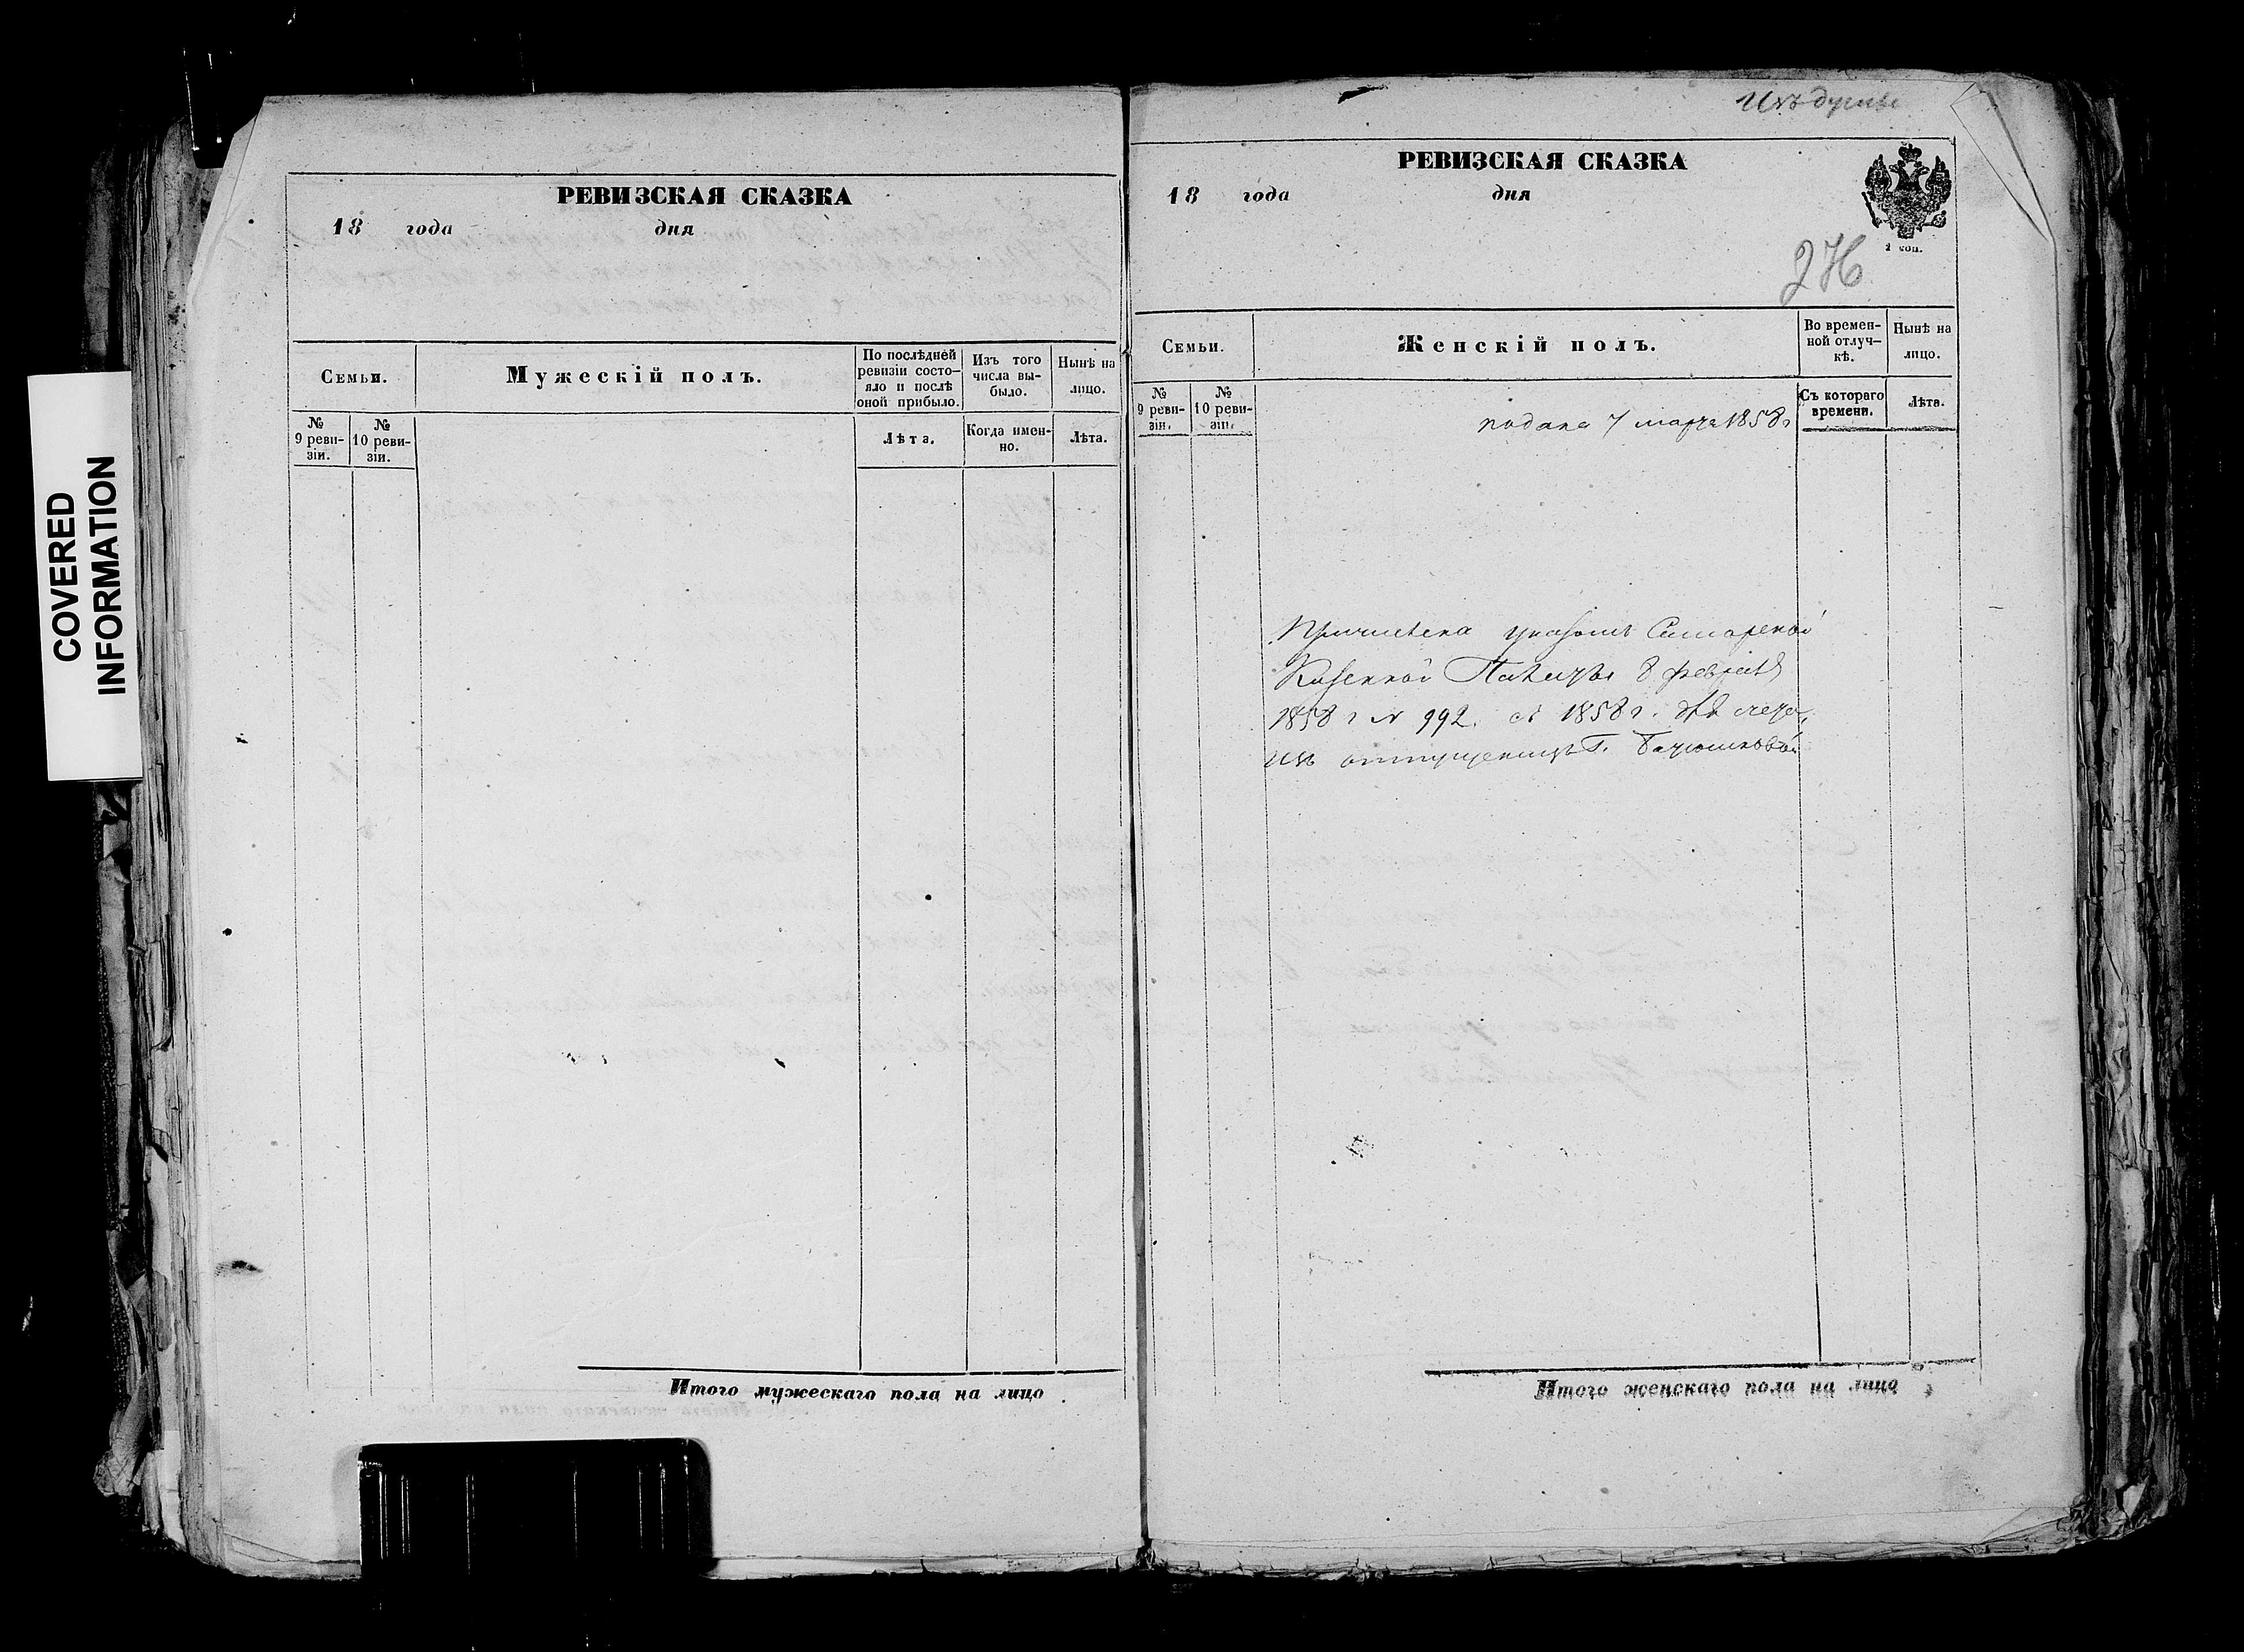 COVERED
INFORMATION
РЕВИЗСКАЯ СКАЗКА
18 года дня
Семьи.
Мужескій полъ.
По послѣдней
ревизіи состо-
яло и послѣ
оной прибыло.
Изъ того
числа вы-
было.
Нынѣ на
лицо.
№
9 реви-
зіи.
№
10 реви-
зіи.
Лѣта.
Когда имен-
но.
Лѣта.
Итого мужескаго пола на лицо
РЕВИЗСКАЯ СКАЗКА
18 года дня
1 коп.
Семьи.
Женскій полъ.
Во времен-
ной отлуч-
кѣ.
Нынѣ на
лицо.
№
9 реви-
зіи.
№
10 реви-
зіи.
Съ котораго
времени.
Лѣта.
подана 7 марта 1858 г
Причислена указомъ Самарской
Казенной Палаты 8 февраля
1858 г N 992. съ 1858 г.
изъ отпущенницъ Г.
Итого женскаго пола на лицо